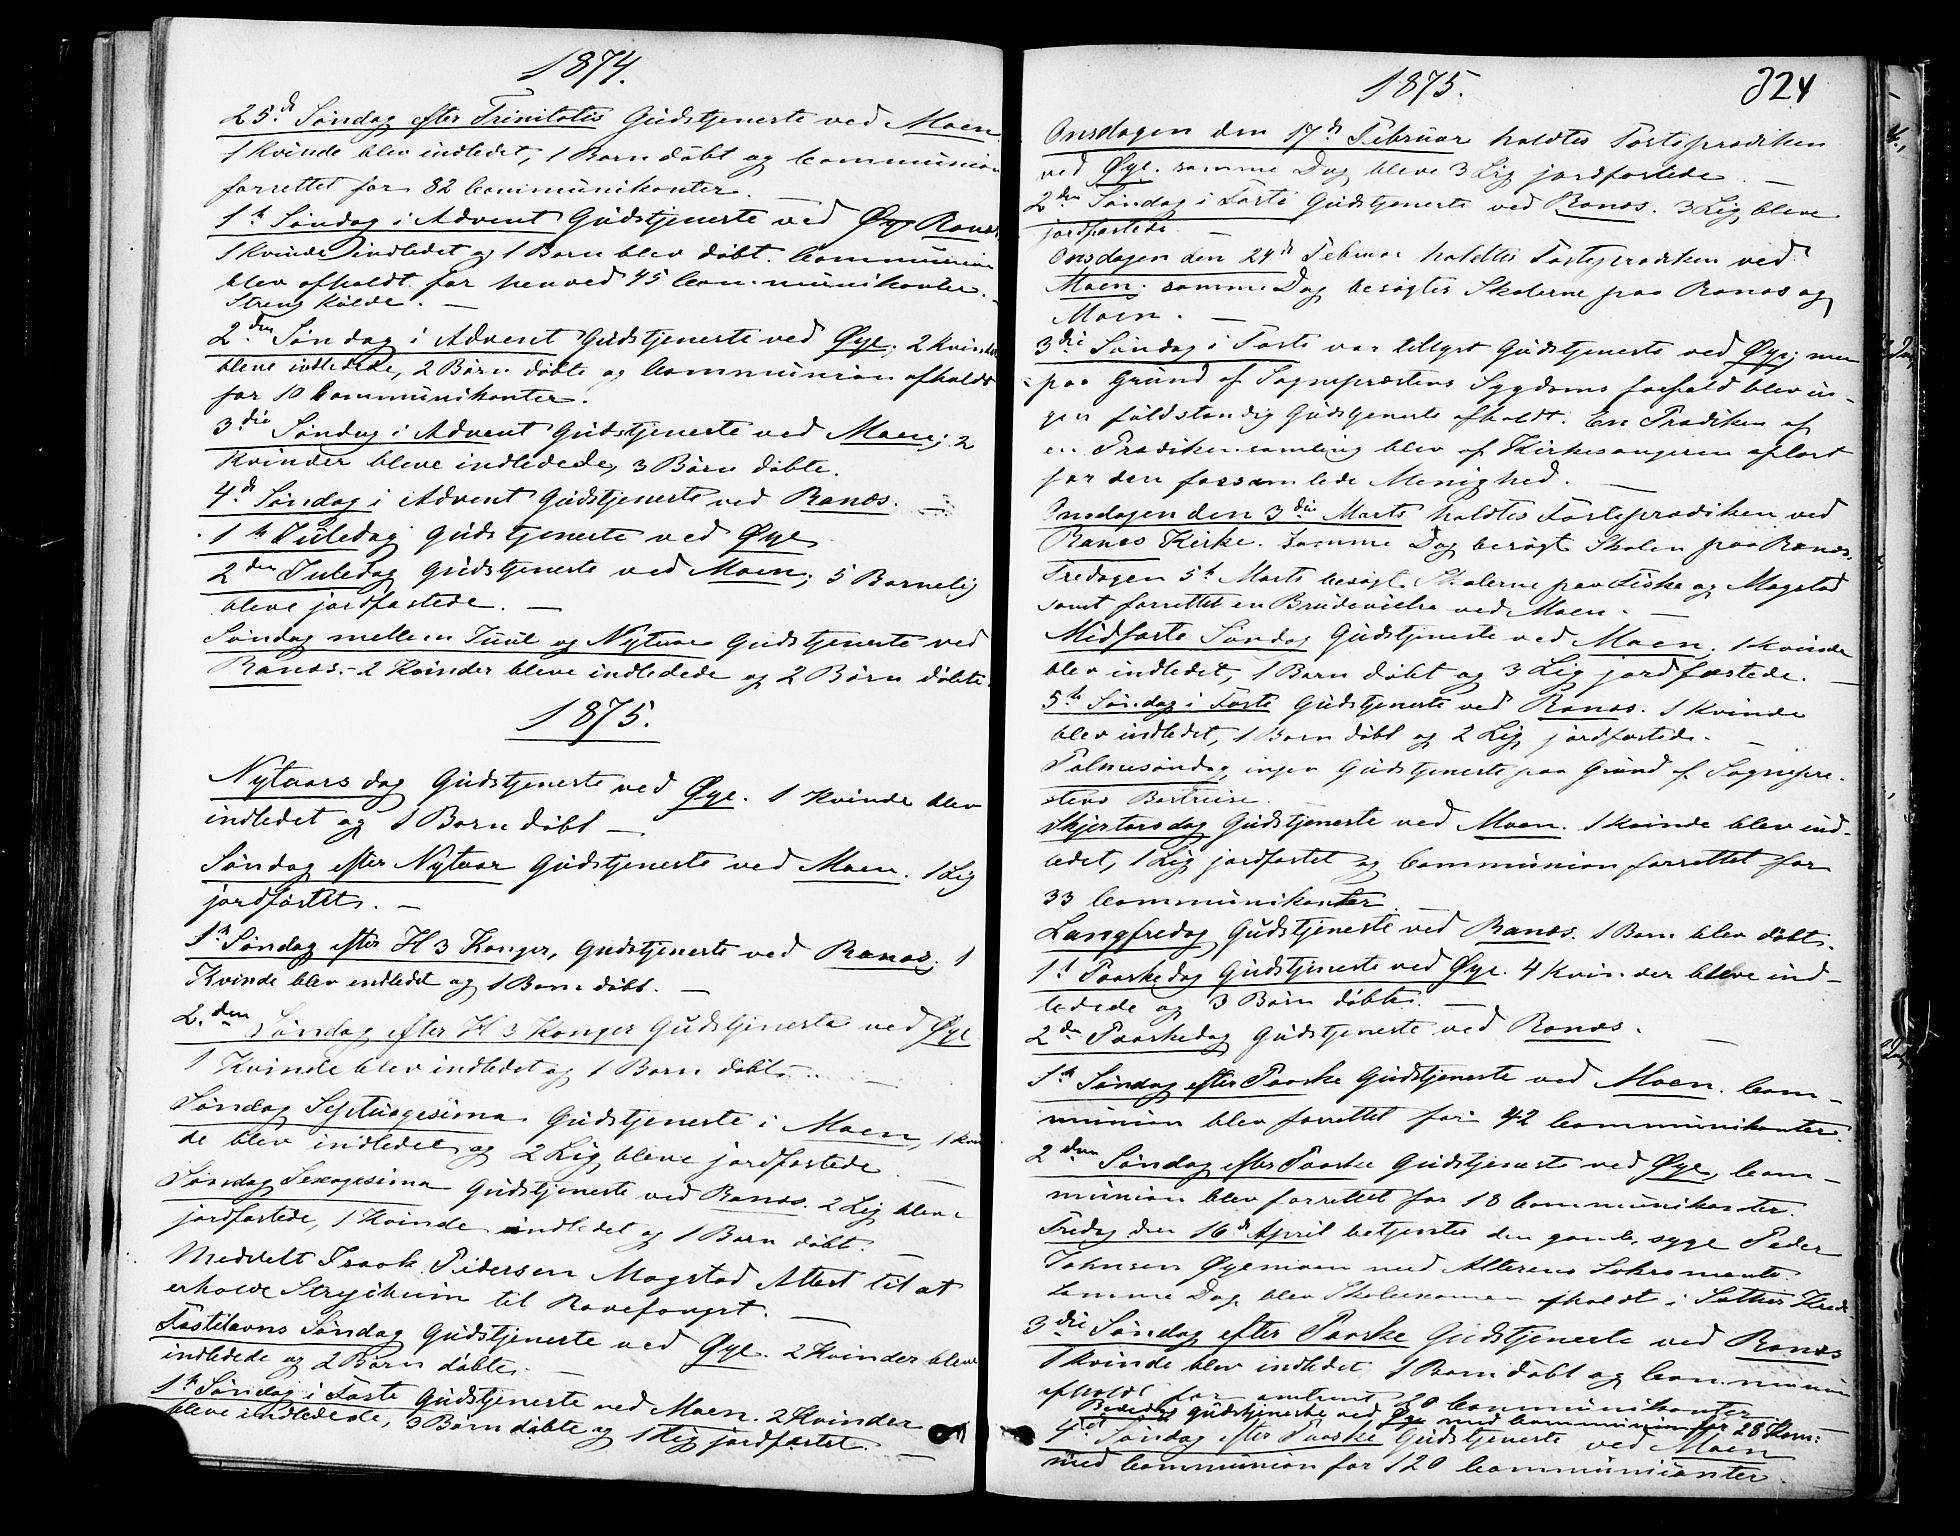 1874.
25.d Søndag efter Trinitatis Gudstjeneste ved Moen
1 Kvinde blev indledet, 1 Barn døbt og Communion
forrettet for 82 Communikanter.
1.te Søndag i Advent Gudstjeneste ved Øye Ranæs
1 Kvinde indledet og 1 Barn blev døbt. Communion
blev afholdt for henved 45 Communikanter. –
Streng Kulde. –
2.den Søndag i Advent Gudstjeneste ved Øye; 2 Kvinder
bleve indledede, 2 Børn døbte og Communion afholdt
for 10 Communikanter.
3.die Søndag i Advent Gudstjeneste ved Moen; 2
Kvinder bleve indledede, 3 Børn døbte.
4.de Søndag i Advent Gudstjeneste ved Ranæs. –
1te Juledag Gudstjeneste ved Øye
2den Juledag Gudstjeneste ved Moen; 5 Barnelig
bleve jordfæstede. –
Søndag mellem Juul og Nytaar Gudstjeneste ved
Ranæs. – 2 Kvinder bleve indledede og 2 Børn døbte.
1875.
Nytaarsdag Gudstjeneste ved Øye. 1 Kvinde blev
indledet og 1 Barn døbt –
Søndag efter Nytaar Gudstjeneste ved Moen. 1 Lig
jordfæstet. –
1.te Søndag efter H 3 Konger, Gudstjeneste ved Ranæs; 1
Kvinde blev indledet og 1 Barn døbt. –
2.den Søndag efter H 3 Konger Gudstjeneste ved Øye
1 Kvinde blev indledet og 1 Barn døbt. –
Søndag Septuagesima Gudstjeneste i Moen, 1 Kvin
de blev indledet og 2 Lig bleve jordfæstede –
Søndag Sexagesima Gudstjeneste ved Ranæs. 2 Lig bleve
jordfæstede, 1 Kvinde indledet og 1 Barn døbt. –
Meddelt Isaak Pedersen Magstad Attest til at
erholde Strychnin til Rævefangst. –
Fastelavns Søndag Gudstjeneste ved Øye. 2 Kvinder bleve
indledede og 2 Børn døbte. –
1te Søndag i Faste Gudstjeneste ved Moen. 2 Kvinder
bleve indledede, 3 Børn døbte og 1 Lig jordfæstet. –
1875.
324
Onsdagen den 17de Februar holdtes Fasteprædiken
ved Øye. samme Dag bleve 3 Lig jordfæstede. –
2den Søndag i Faste Gudstjeneste ved Ranæs. 3 Lig bleve
jordfæstede. –
Onsdagen den 24de Februar holdtes Fasteprædiken ved
Moen. samme Dag besøgtes Skolerne paa Ranæs og
Moen. –
3die Søndag i Faste var tillyst Gudstjeneste ved Øye; men
paa Grund af Sognepræstens Sygdoms forfald blev in-
gen fuldstændig Gudstjeneste afholdt. En Prædiken af
en Prædikensamling blev af Kirkesangeren oplæst
for den forsamlede Menighed. –
Onsdagen den 3die Marts holdtes Fasteprædiken ved
Ranæs Kirke. Samme Dag besøgt Skolen paa Ranæs.
Fredagen 5te Marts besøgt Skolerne paa Fiske og Magstad
samt forrettet en Brudevielse ved Moen. –
Midfaste Søndag Gudstjeneste ved Moen. 1 Kvinde
blev indledet, 1 Barn døbt og 3 Lig jordfæstede. –
5te Søndag i Faste Gudstjeneste ved Ranæs. 1 Kvinde
blev indledet, 1 Barn døbt og 2 Lig jordfæstede. –
Palmesøndag, ingen Gudstjeneste paa Grund af Sognepræ-
stens Bortreise. –
Skjertorsdag Gudstjeneste ved Moen. 1 Kvinde blev ind-
ledet, 1 Lig jordfæstet og Communion forrettet for
33 Communikanter
Langfredag Gudstjeneste ved Ranæs. 1 Barn blev døbt.
1te Paaskedag Gudstjeneste ved Øye. 4 Kvinder bleve ind-
ledede og 3 Børn døbte. –
2den Paaskedag Gudstjeneste ved Ranæs. –
1te Søndag efter Paaske Gudstjeneste ved Moen. Com-
munion blev forrettet for 42 Communikanter.
2den Søndag efter Paaske Gudstjeneste ved Øye, Com-
munion blev forrettet for 18 Communikanter.
Fredag den 16de April betjentes den gamle, syge Peder
Johnsen Øyemoen med Alterens Sakramente.
Samme Dag blev Skoleexamen afholdt i Sæther Kreds
3die Søndag efter Paaske Gudstjeneste ved Ranæs
1 Kvinde blev indledet 1 Barn døbt og Communion
afholdt for omtrent 20 Communikanter
Bededag Gudstjeneste ved Øye med Communion for 28 Kom:
4de Søndag efter Paaske Gudstjeneste ved Moen
med Communion for 120 Communicanter.